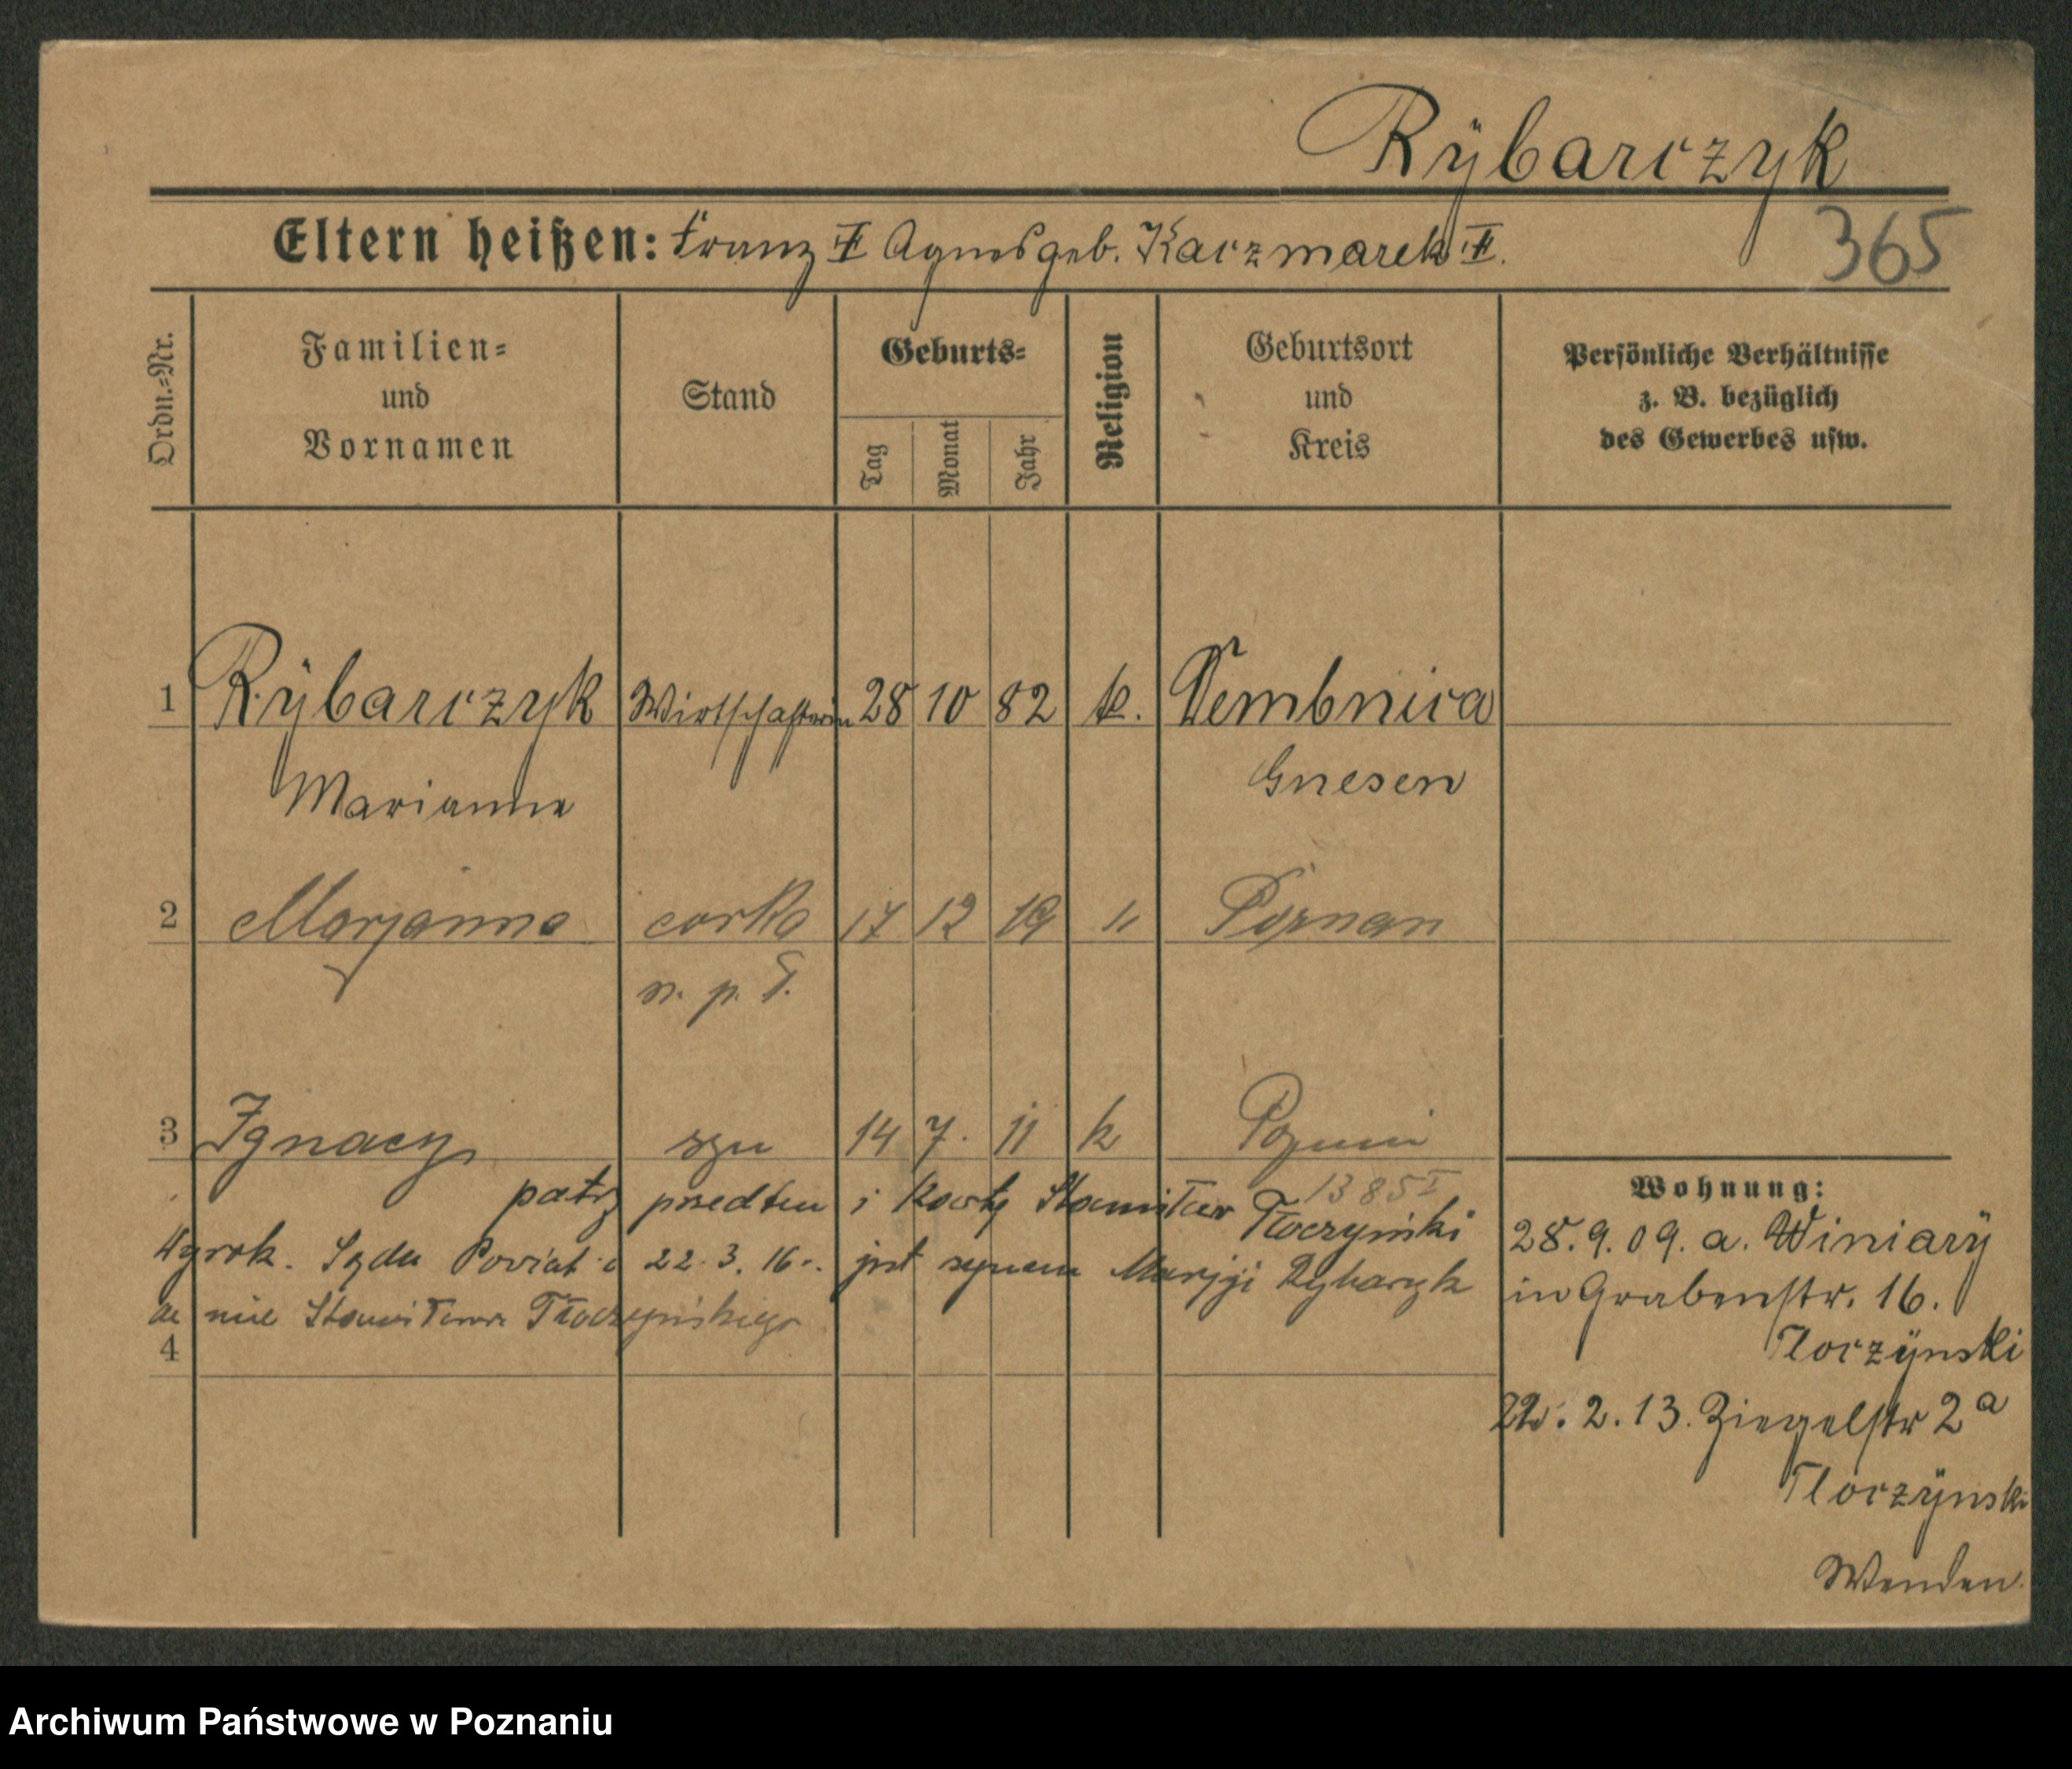 Rÿbarczyk
365
Eltern heißen: Franz II Agnes geb. Kaczmarek II.
Ordn.=Nr.
Familien=
und
Vornamen
Stand
Geburts=
Tag
Monat
Jahr
Religion
Geburtsort
und
Kreis
Persönliche Verhältnisse
z. B. bezüglich
des Gewerbes usw.
1 Rÿbarczyk Wirtschafterin 28 10 82 k. Dembnica
Marianne Gnesen
2 Marjanna corka 17 12 19 " Poznan
n. p. T.
3 Ignacy syn 14 7. 11 k
1385 I
patrz przedtem i kartę Stanisław Tłoczyński
Wyrok. Sądu Powiat. 22.3.16 jest synem Maryji Rybarczyk
a nie Stanisława Tłoczyńskiego
4
Wohnung:
28.9.09. a. Winiarÿ
in Grabenstr. 16.
Tloczÿnski
22.2.13. Ziegelstr 2a
Tloczÿnski
Wenden.
Archiwum Państwowe w Poznaniu